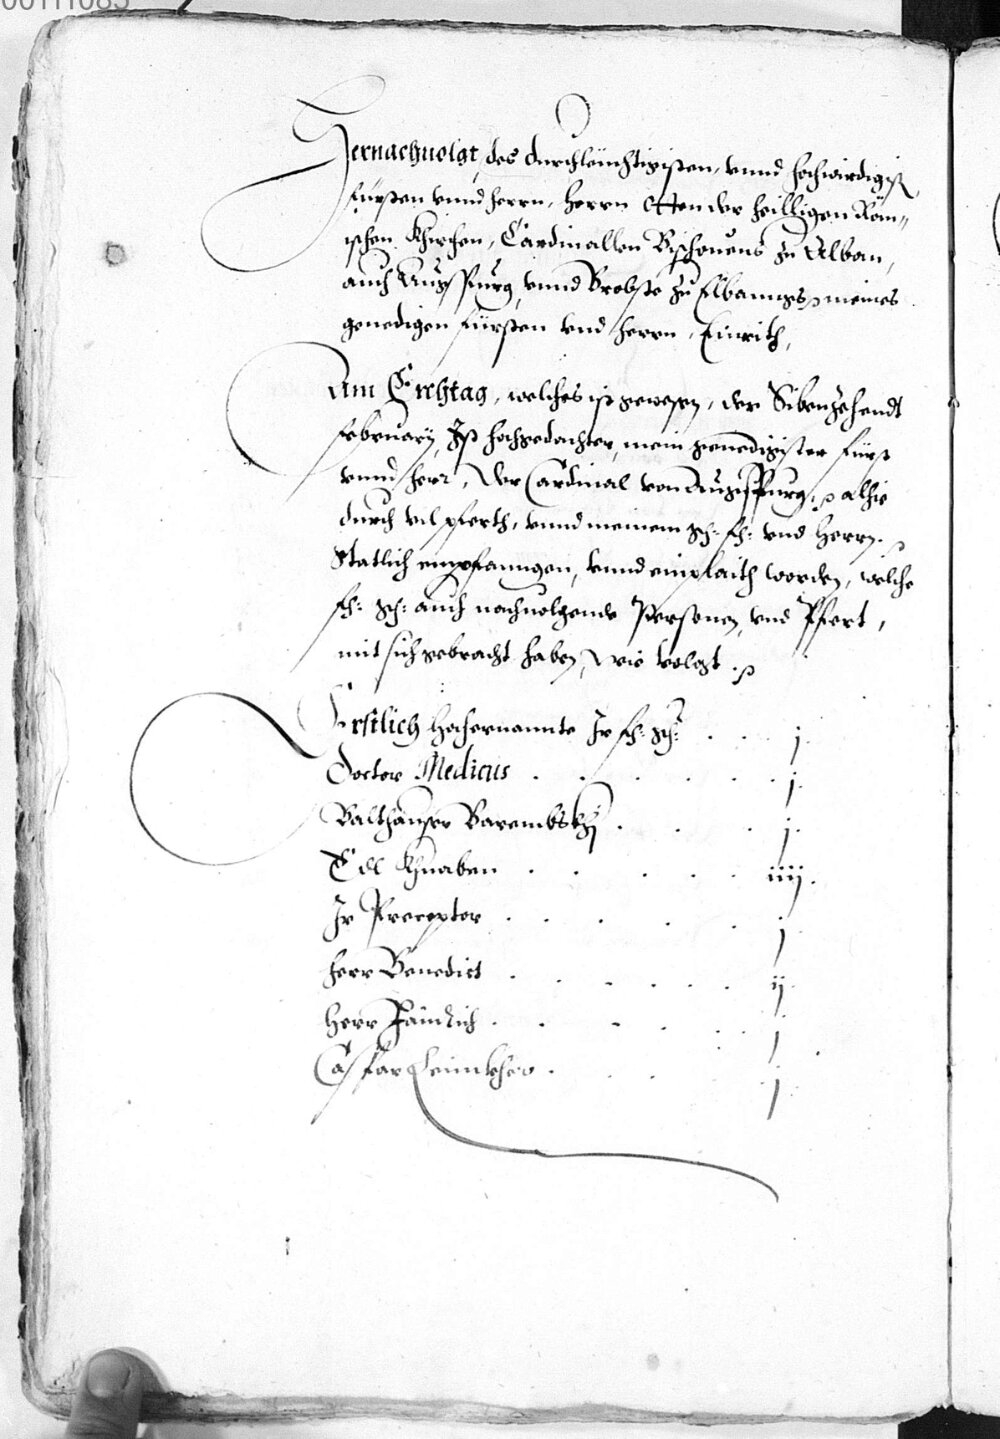 00111085
Hernachuolgt, des durchleüchtigisten, vnnd hochwirdigist
fürsten vnnd herrn, herrn Otten der heilligen Röm„
ischen Khirchen, Cardinallen Bischouens zu Alban,
auch Augspurg, vnnd Brobste zu Elbanngs, meines
genedigen fürsten vnd herrn, Einrith,
Am Erchtag, welches ist gewesen, der Sibenzehendt
february, Ist hochgedachter, mein genedigister fürst
vnnd herr, der Cardinal von Augspurg, alhie
durch vil pferth, vnnd meinem g: f: vnd herrn.
Statlich empfanngen, vnnd einplaith worden, welche
f: g: auch nachuolgende Personen, vnd Pfert,
mit sich gebracht haben, wie volgt.
Erstlich hochernannte Ir f: g: . . . j.
Doctor Medicus . . . . . . j.
Balthauser Barembskhj . . . j.
Edl Khnaben . . . . . iiij.
Ir Preceptor . . . . . j.
Herr Benedict . . . . . ij.
Herr . . . . . j.
Caspar . . . j.